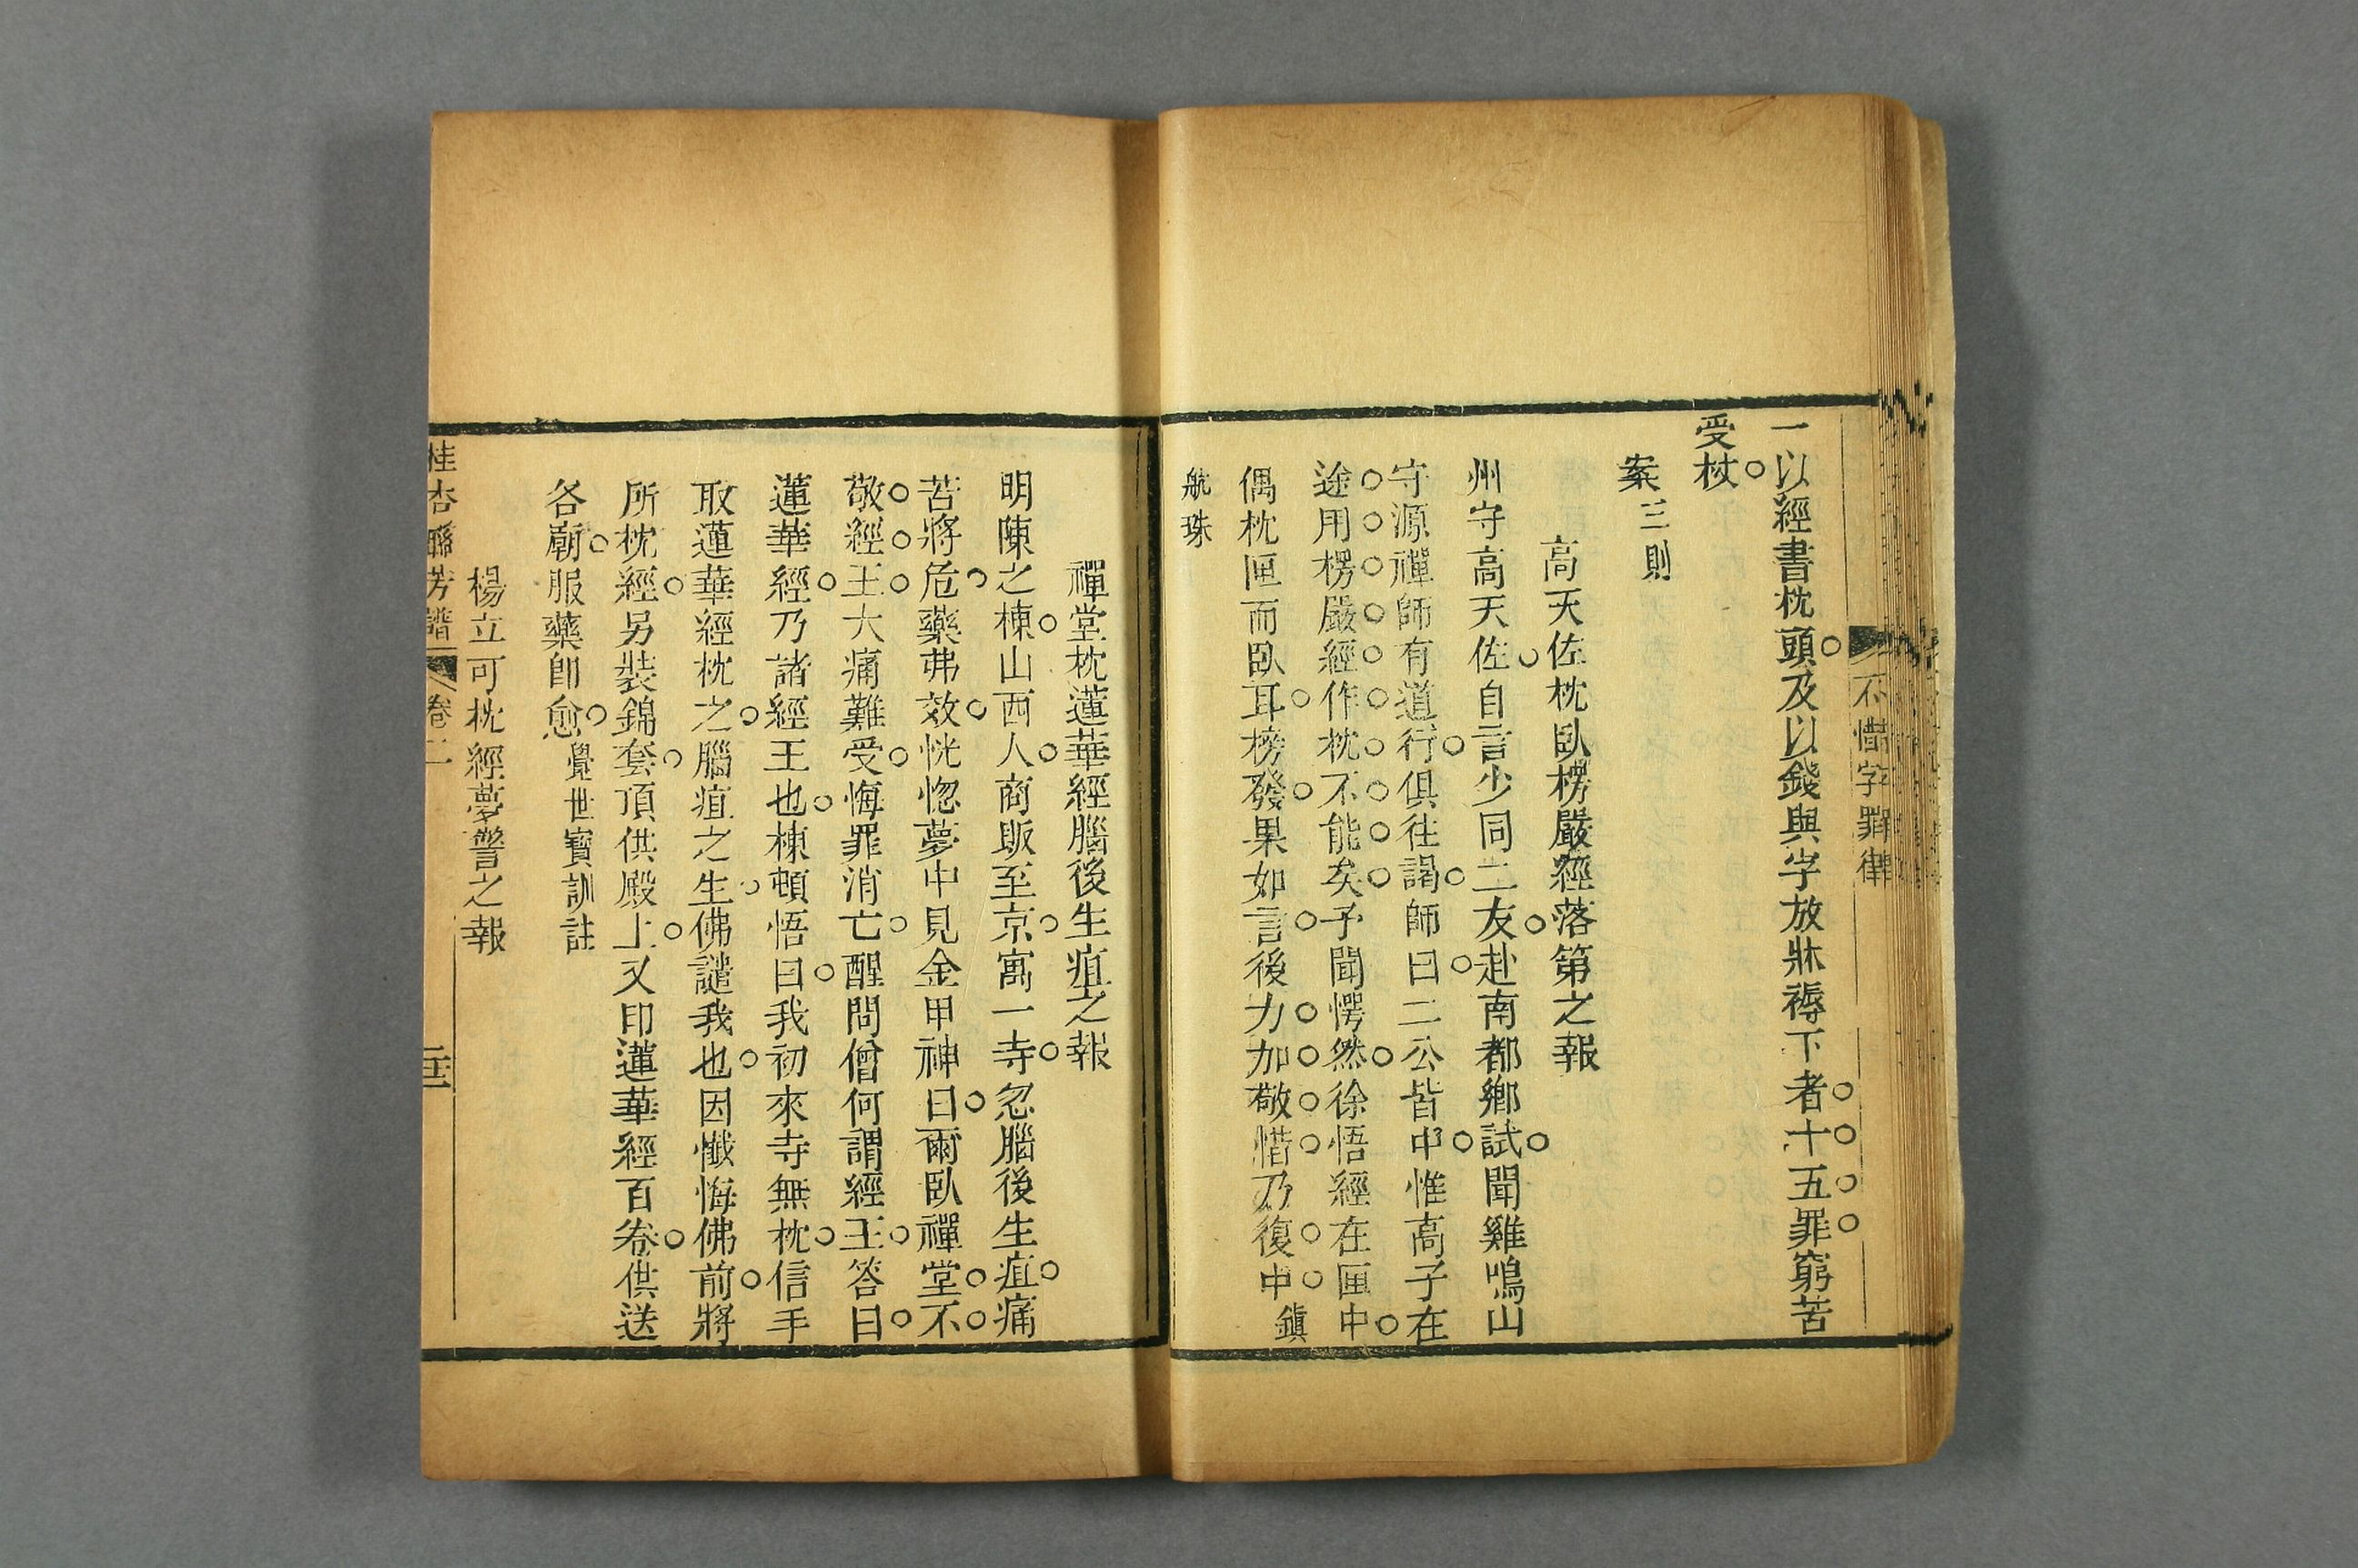 不惜字罪律
一以經書枕頭及以錢與字放牀褥下者十五罪窮苦
受杖
案三則
高天佐枕臥楞嚴經落第之報
州守高天佐自言少同二友赴南都鄉試聞雞鳴山
守源禪師有道行俱往謁師曰二公皆中惟高子在
途用楞嚴經作枕不能矣予聞愕然徐悟經在匣中
偶枕匣而臥耳榜發果如言後力加敬惜乃復中鎭
航珠
禪堂枕蓮華經腦後生疽之報
明陳之棟山西人商販至京寓一寺忽腦後生疽痛
苦將危藥弗效恍惚夢中見金甲神曰爾臥禪堂不
敬經王大痛難受悔罪消亡醒問僧何謂經王答曰
蓮華經乃諸經王也棟頓悟曰我初來寺無枕信手
取蓮華經枕之腦疽之生佛譴我也因懺悔佛前將
所枕經另裝錦套頂供殿上又印蓮華經百卷供送
各廟服藥卽愈覺世寶訓註
楊立可枕經夢警之報
桂杏聯芳譜
卷二